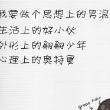 我要做个思想上的男流
生活上的好小伙
外形上的翩翩少年
心理上的奥特曼